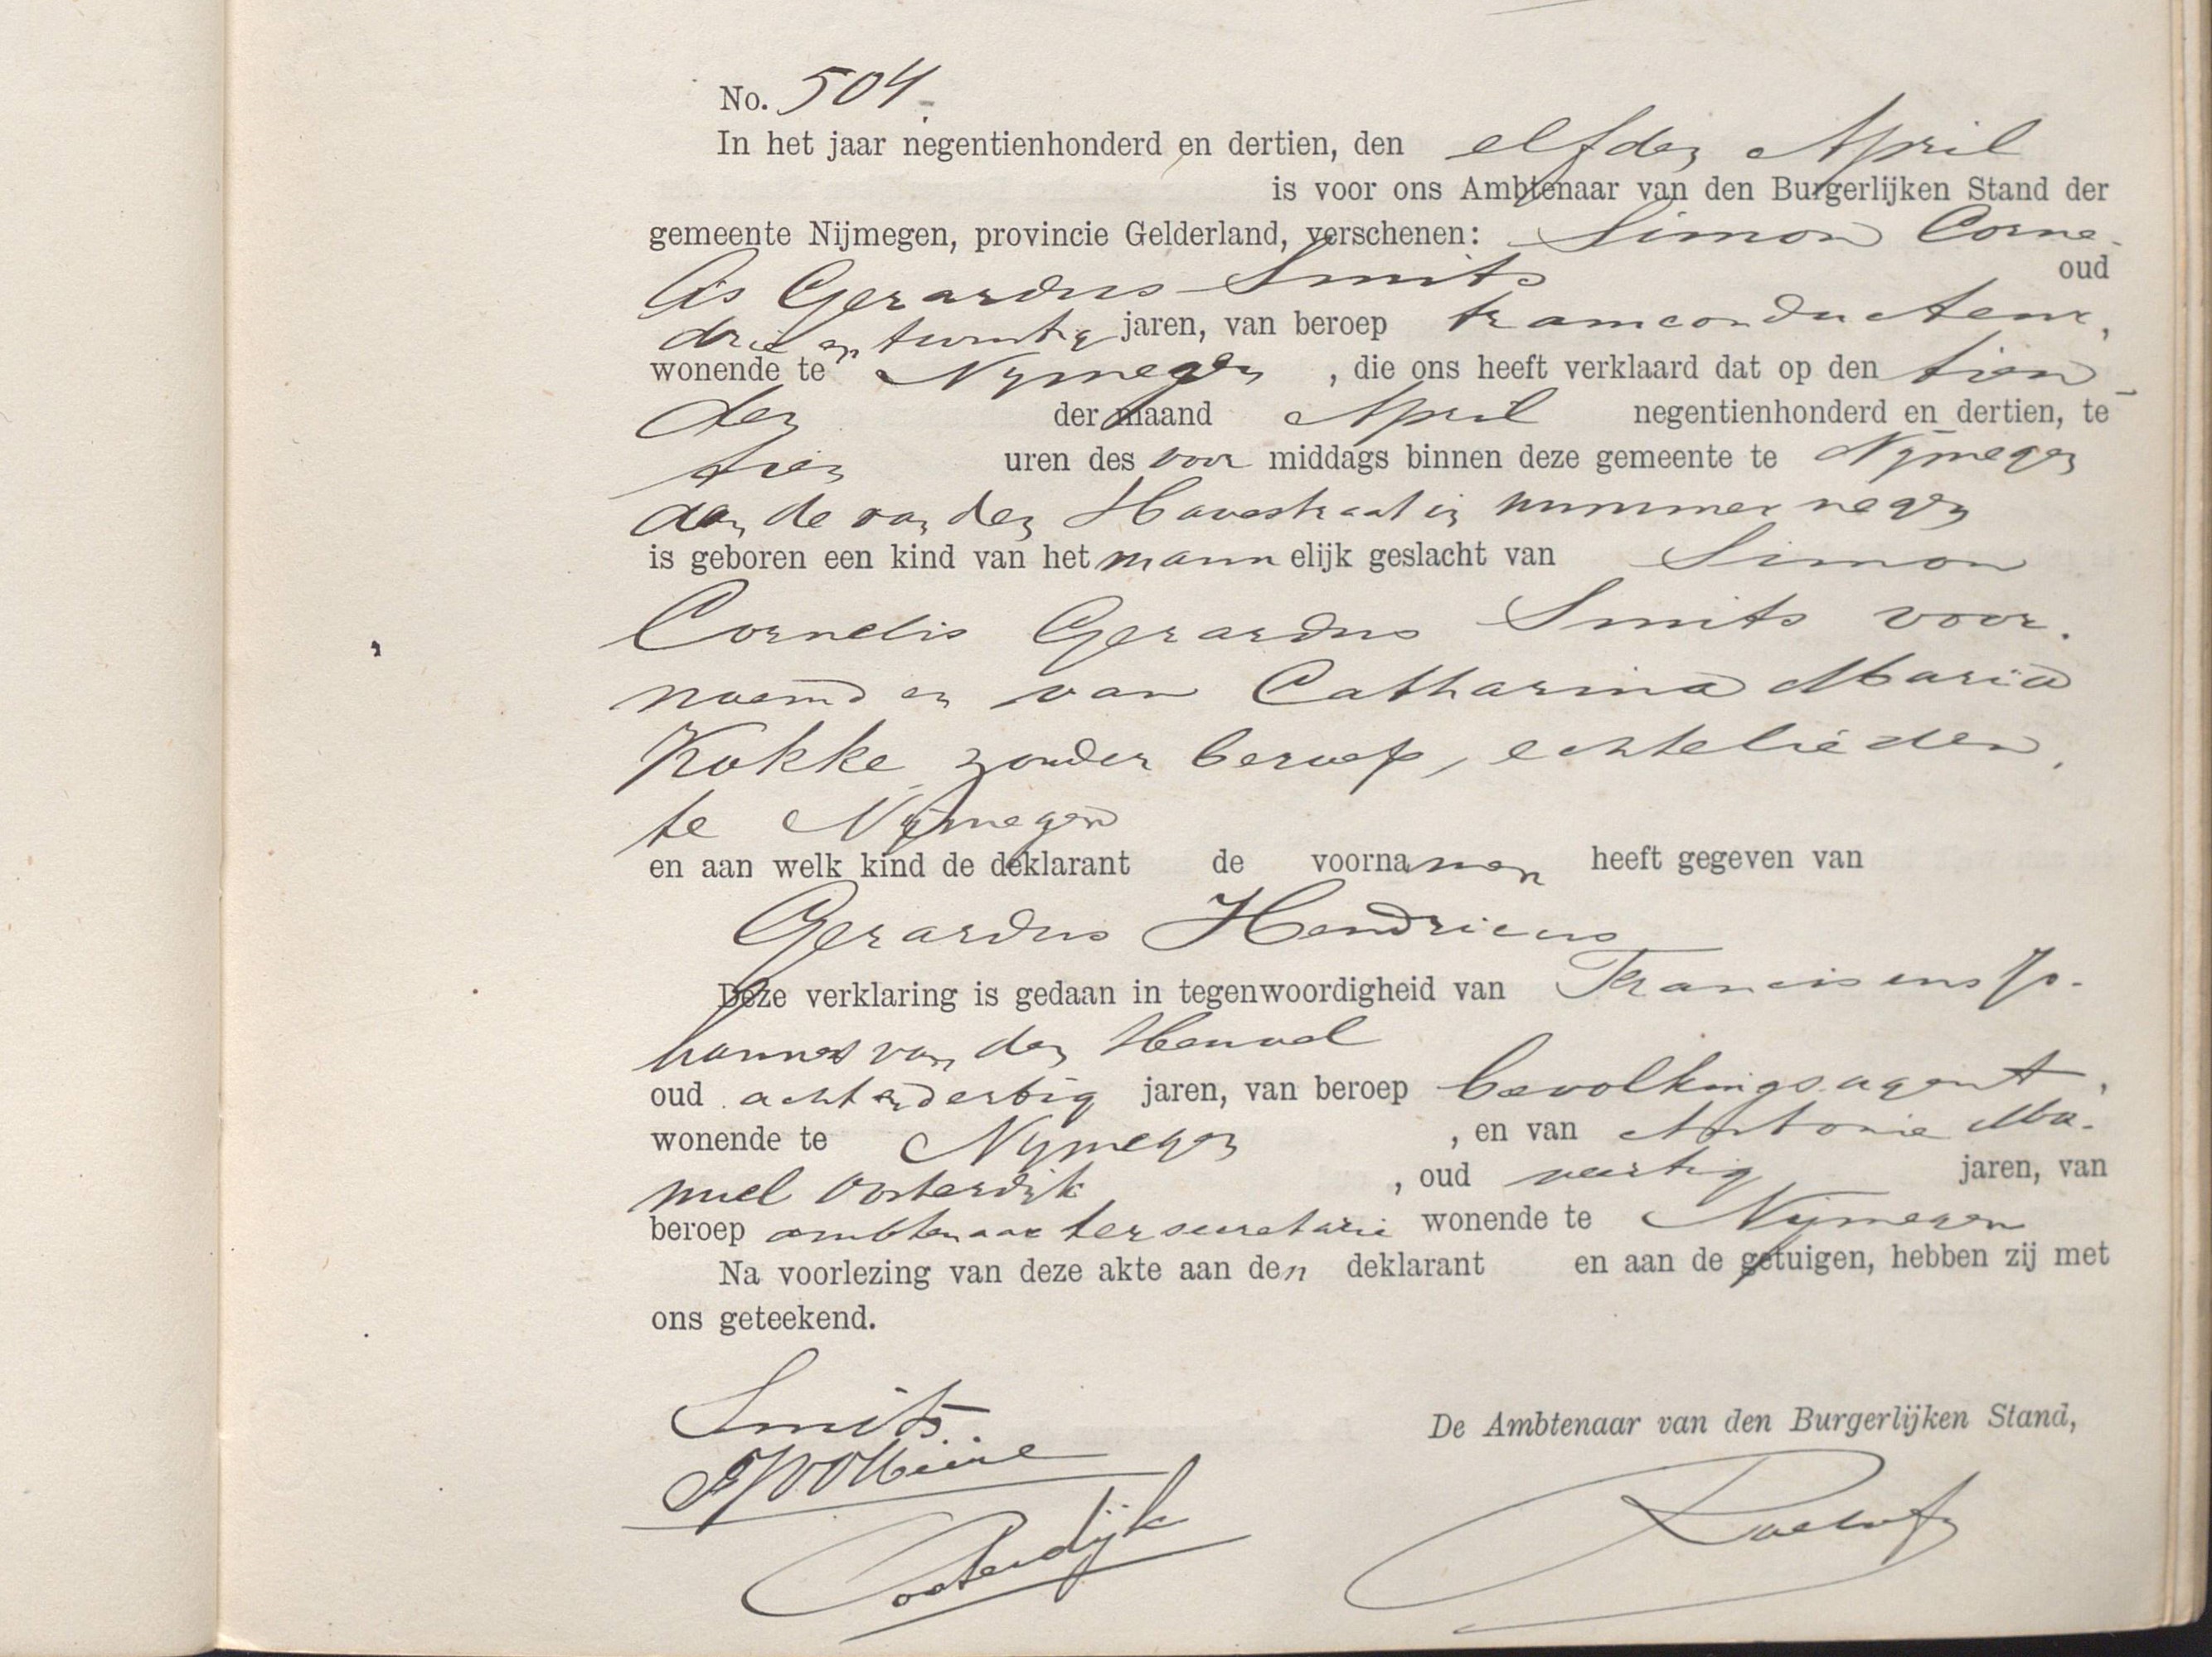 No. 504.
In het jaar negentienhonderd en dertien, den elfden April
is voor ons Ambtenaar van den Burgerlijken Stand der
gemeente Nijmegen, provincie Gelderland, verschenen: Simon Corne-
lis Gerardus Smits oud
drie en twintig jaren, van beroep tramconducteur,
wonende te Nymegen, die ons heeft verklaard dat op den tien
den der maand April negentienhonderd en dertien, te
tien uren des voor middags binnen deze gemeente te Nymegen
aan de van den Havestraat in nummer negen
is geboren een kind van het mannelijk geslacht van Simon
Cornelis Gerardus Smits voor.
noemd en van Catharina Maria
Kokke, zonder beroep, echtelieden,
te Nymegen
en aan welk kind de deklarant de voornamen heeft gegeven van
Gerardus Hendricus
Deze verklaring is gedaan in tegenwoordigheid van Franciscus Jo-
hannes van den Heuvel
oud acht en dertig jaren, van beroep bevolkingsagent,
wonende te Nymegen, en van Antonie Ma-
nuel Oosterdijk, oud veertig jaren, van
beroep ambtenaar ter secretarie wonende te Nijmegen
Na voorlezing van deze akte aan den deklarant en aan de getuigen, hebben zij met
ons geteekend.
Smits
De Ambtenaar van den Burgerlijken Stand,
Oosterdijk